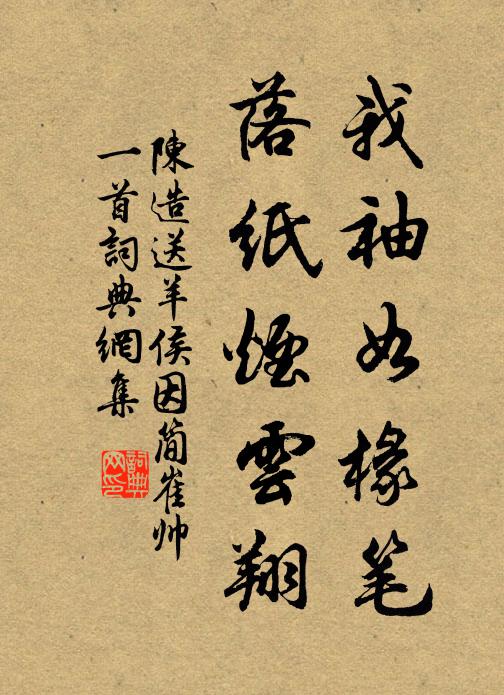 我袖如椽笔
落紙煙雲翔
陳造送羊侯因简崔帅
一首詞典網集
詞典网印